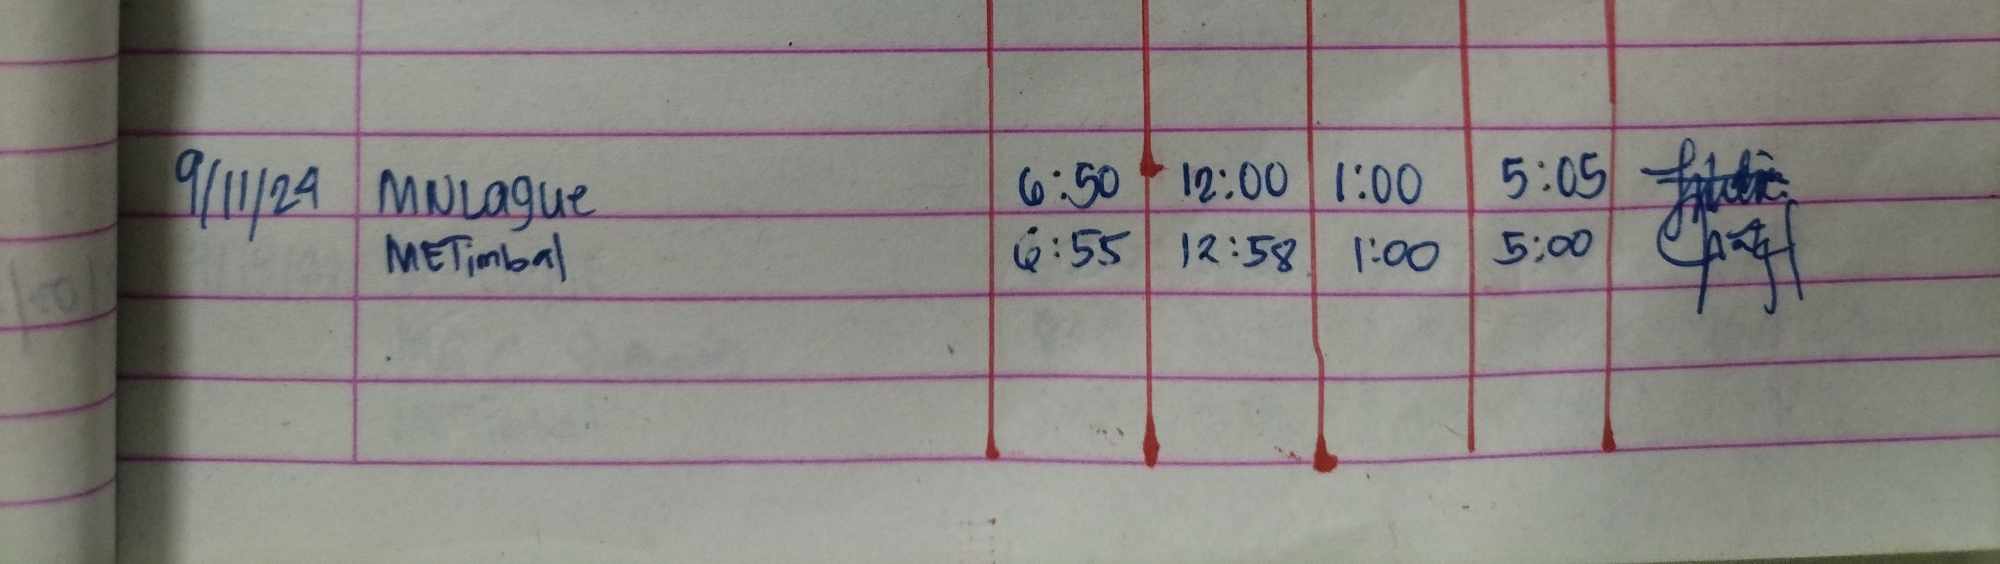 9/11/24 MNLague 6:50 12:00 1:00 5:05
METimbal 6:55 12:58 1:00 5:00